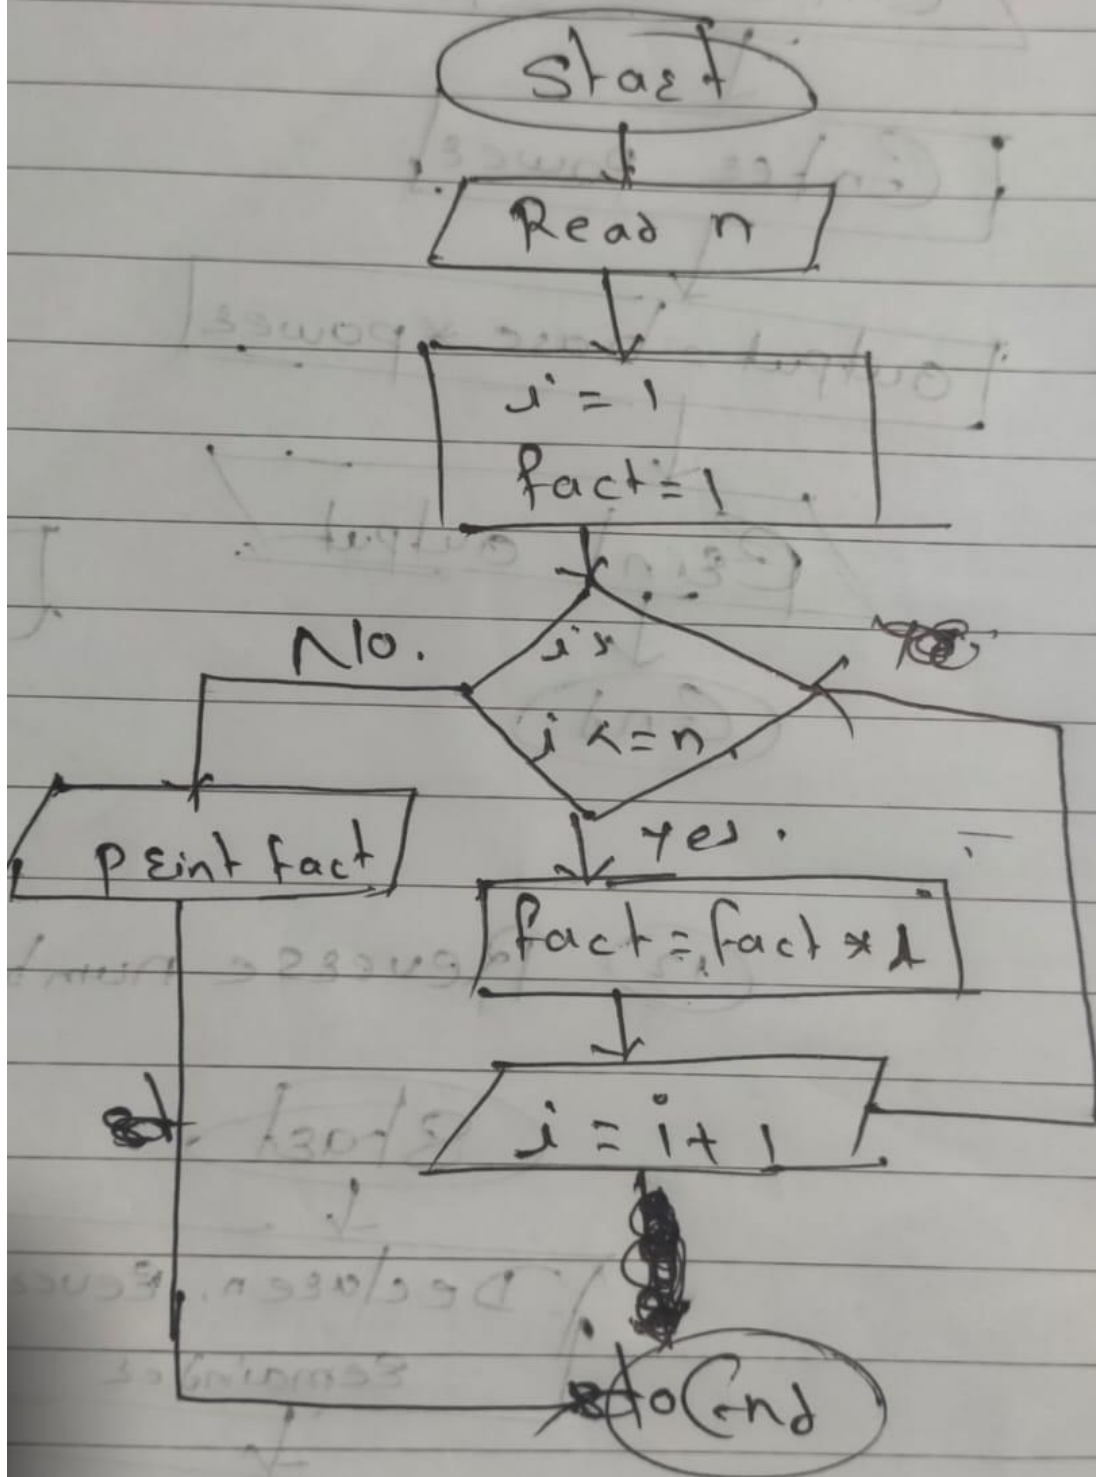 Start
Read n
i = 1
fact = 1
i
i <= n
No.
yes.
print fact
fact = fact * i
i = i + 1
End